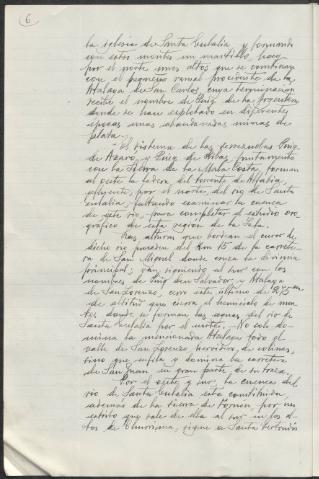 6
la iglesia de Santa Eulalia y formando
con estos montes un martillo, hacia
por el norte unos altos que se combinan
con el pequeño ramal procedente de la
Atalaya de San Carlos, cuya terminación
recibe el nombre de Puig de la Argentera
donde se han explotado en diferentes
épocas unas abandonadas minas de
plata.
El sistema de las Puig
de Atzaró, y Puig de Ribas, juntamente
con la Sierra de la Mala Costa, forman
al oeste la ladera del torrente de
afluente, por el norte, del río de Santa
Eulalia, faltando examinar la cuenca
de este río, para completar el estudio oro-
gráfico de esta región de la Isla.
Las alturas que bordean el curso de
dicho río pueden del Km 15 de la carrete-
ra de San Miguel donde cruza la divisoria
principal; van siguiendo al sur con los
nombres de Puig d'en Salvador, y Atalaya
de San Lorenzo, con este último de
de altitud que cierra el hemiciclo de mon-
tes donde se forman las aguas del río de
Santa Eulalia por el norte. No solo do-
mina la mencionada Atalaya todo el
valle de San Lorenzo de colinas,
sino que enfila y domina la carretera
de San Juan en gran parte de su traza.
Por el oeste y sur, la cuenca del
río de Santa Eulalia está constituida
además de la Sierra de Fornou, por un
estribo que sale de ella al sur en los al-
tos de sigue a Santa Gertrudis